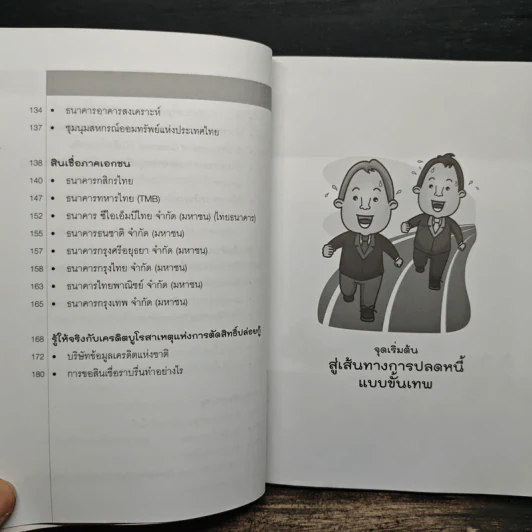 134 • ธนาคารอาคารสงเคราะห์
137 • ชุมนุมสหกรณ์ออมทรัพย์แห่งประเทศไทย
138 สินเชื่อภาคเอกชน
140 • ธนาคารกสิกรไทย
147 • ธนาคารทหารไทย (TMB)
152 • ธนาคาร ซีไอเอ็มบีไทย จำกัด (มหาชน) (ไทยธนาคาร)
155 • ธนาคารธนชาติ จำกัด (มหาชน)
157 • ธนาคารกรุงศรีอยุธยา จำกัด (มหาชน)
158 • ธนาคารกรุงไทย จำกัด (มหาชน)
163 • ธนาคารไทยพาณิชย์ จำกัด (มหาชน)
165 • ธนาคารกรุงเทพ จำกัด (มหาชน)
168 รู้ให้จริงกับเครดิตบูโรสาเหตุแห่งการตัดสิทธิ์ปล่อยกู้
172 • บริษัทข้อมูลเครดิตแห่งชาติ
180 • การขอสินเชื่อราบรื่นทำอย่างไร
จุดเริ่มต้น
สู่เส้นทางการปลดหนี้
แบบขั้นเทพ